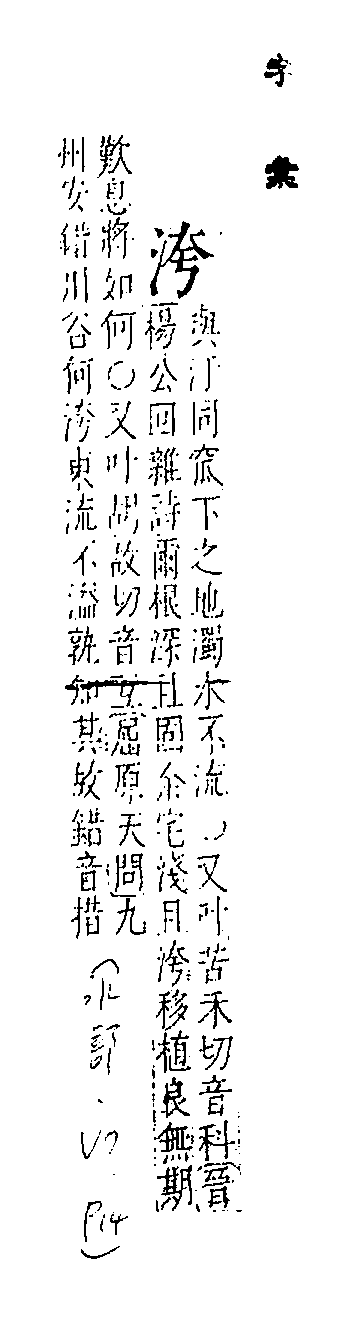 字彙
洿
與汙同窊下之地濁水不流○又叶苦禾切音科晉
楊公回雜詩爾根深且固余宅淺且洿移植良無期
歎息將如何○又叶胡故切音 屈原天問九
州安錯川谷何洿東流不溢孰知其故錯音措
(水部.V7.P14)